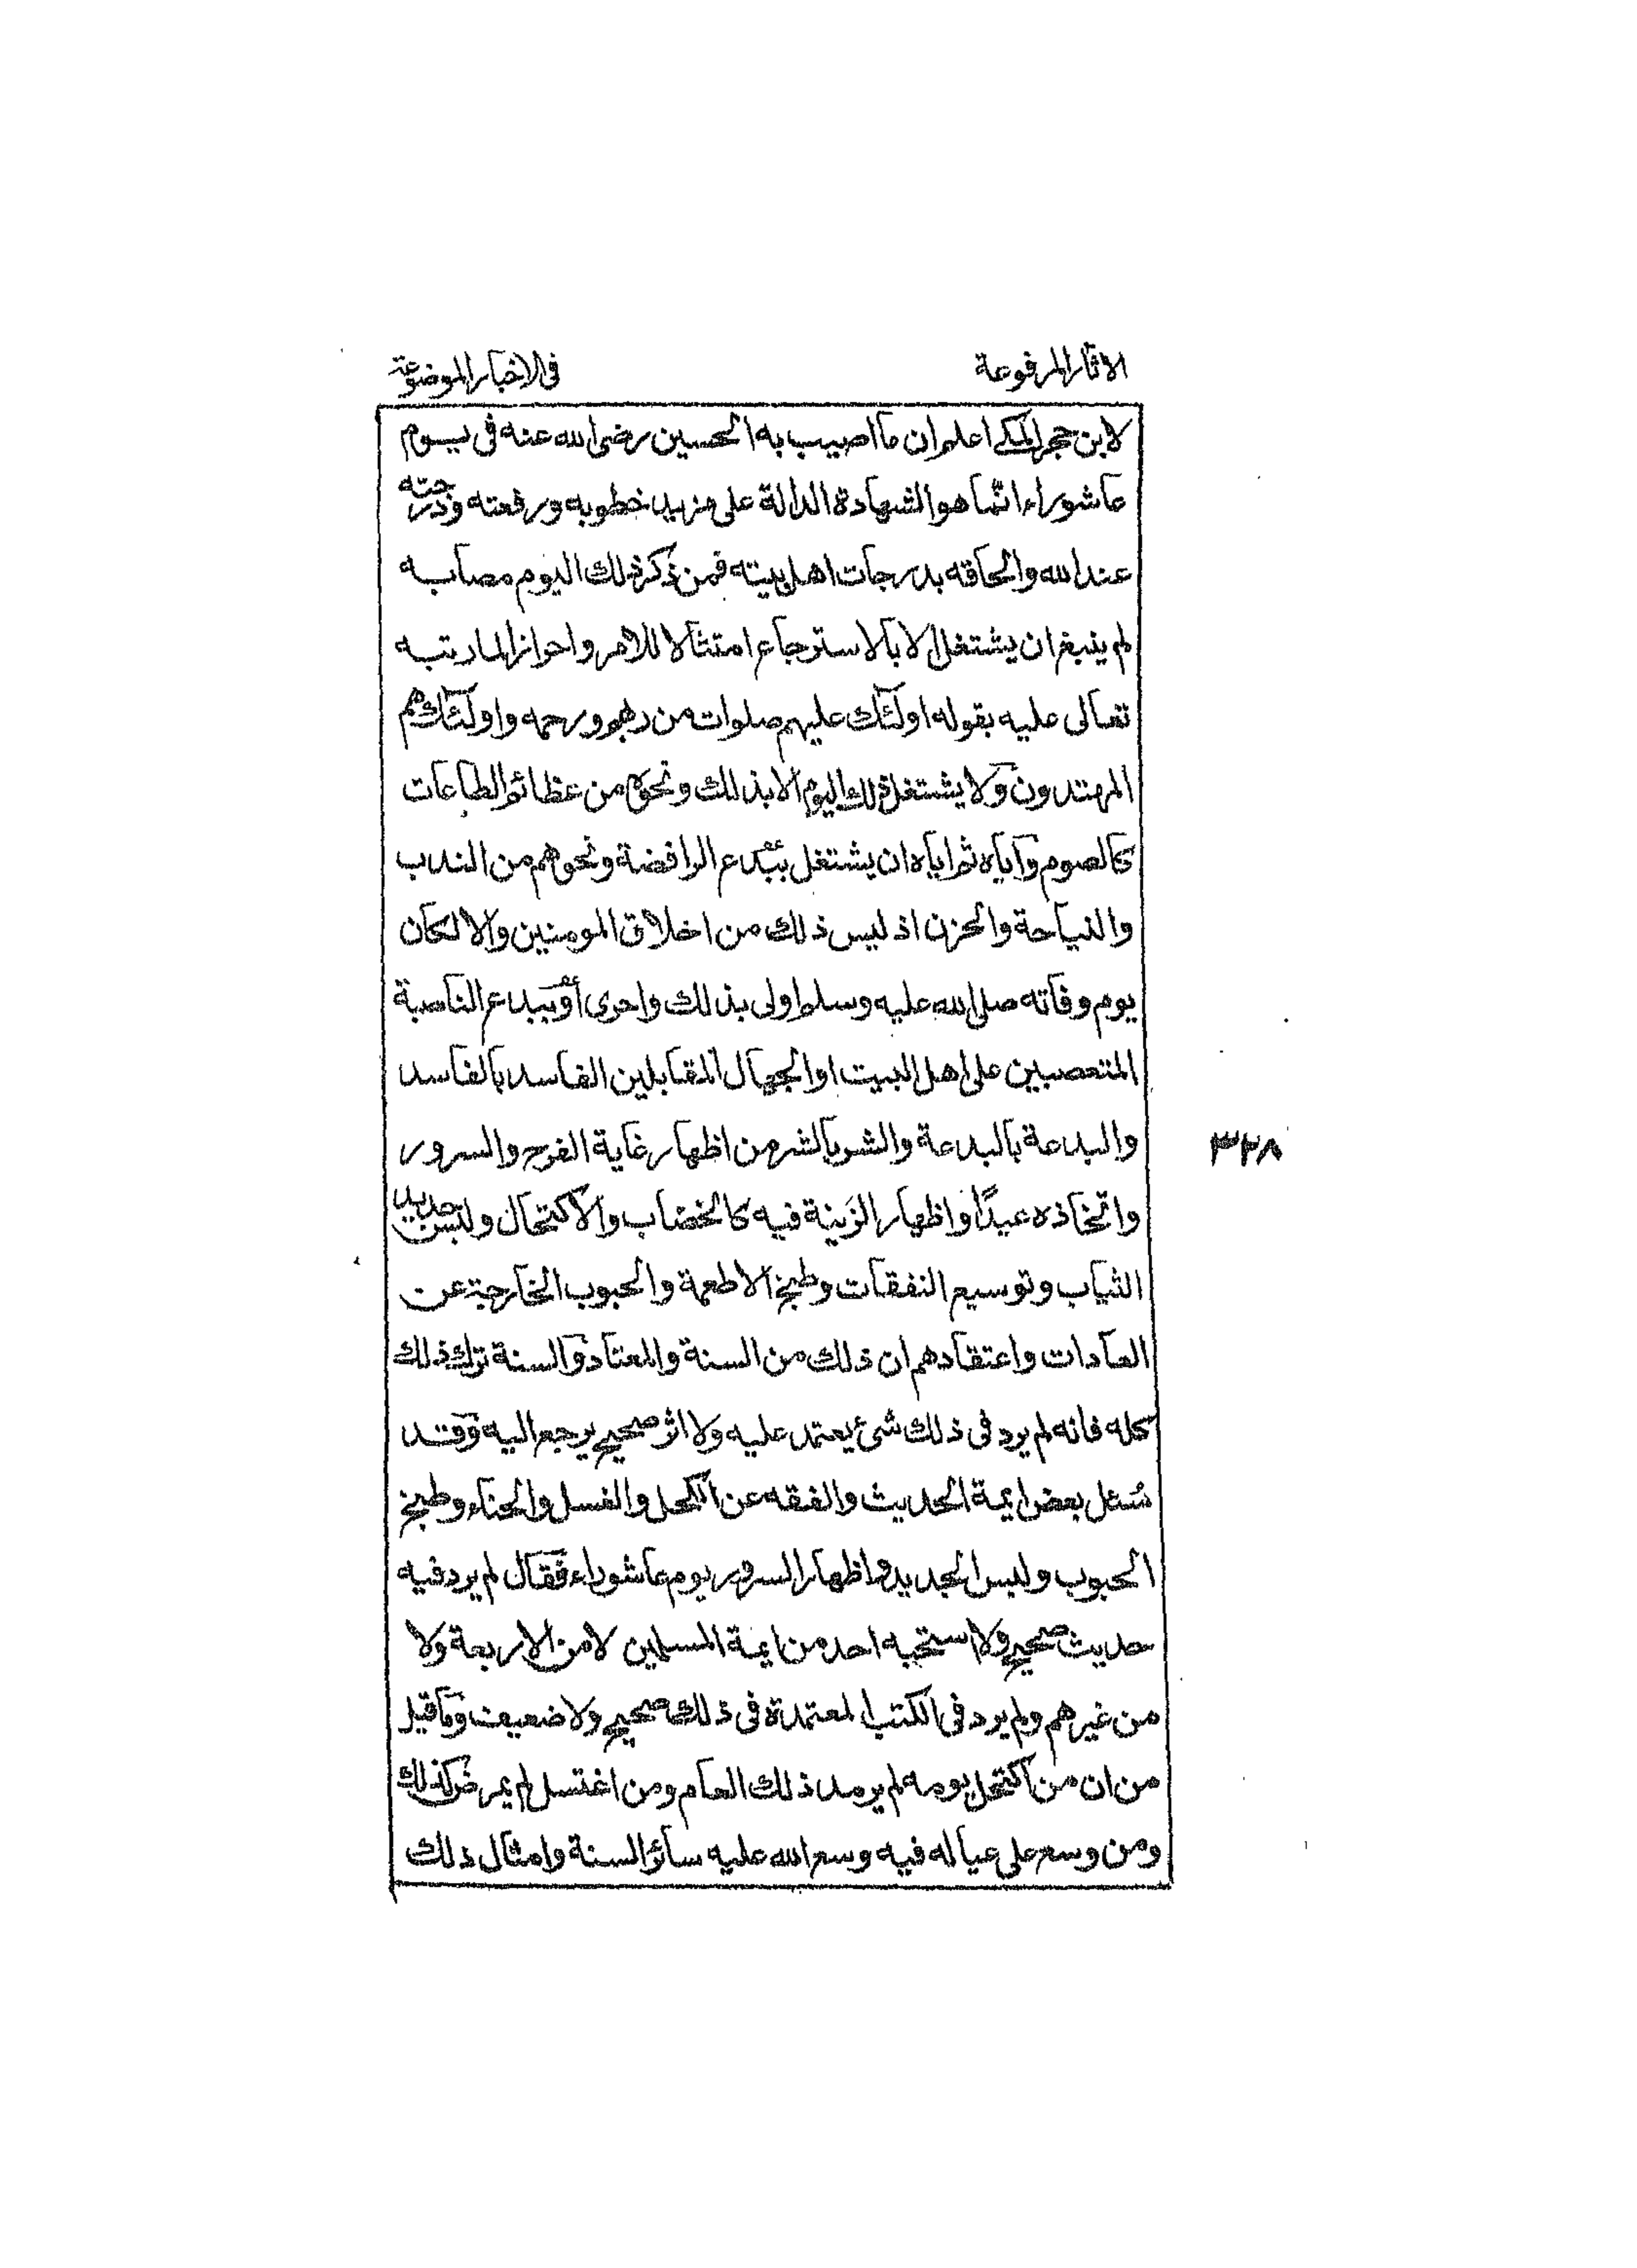 الاثار المرفوعة
فى الاخبار الموضوعة
لابن حجر المكى اعلم ان ما اصيب به الحسين رضى الله عنه فى يوم
عاشوراء انما هو الشهادة الدالة على مزيد خطوبه ورفعته ودرجته
عند الله والحاقه بدرجات اهل بيته فمن ذكر ذلك اليوم مصابه
لم ينبغ ان يشتغل الا بالاسترجاع امتثالا للامر واحرازا لما رتبه
تعالى عليه بقوله اولئك عليهم صلوات من ربهم ورحمه واولئك هم
المهتدون ولا يشتغل ذلك اليوم الا بذلك ونحوه من عظائم الطاعات
كالصوم واياه ثم اياه ان يشتغل ببدع الرافضة ونحوهم من الندب
والنياحة والحزن اذ ليس ذلك من اخلاق المومنين والا لكان
يوم وفاته صلى الله عليه وسلم اولى بذلك واحرى او ببدع الناصبة
المتعصبين على اهل البيت او الجهال المقابلين الفاسد بالفاسد
والبدعة بالبدعة والشر بالشر من اظهار غاية الفرح والسرور
واتخاذه عيدًا واظهار الزينة فيه كالخضاب والاكتحال ولبس جديد
الثياب وتوسيع النفقات وطبخ الاطعمة والحبوب الخارجة عن
العادات واعتقادهم ان ذلك من السنة والمعتاد والسنة ترك ذلك
كله فانه لم يرد فى ذلك شئ يعتمد عليه ولا اثر صحيح يرجع اليه وقد
سُئل بعض ايمة الحديث والفقه عن الكحل والغسل والحناء وطبخ
الحبوب ولبس الجديد واظهار السرور يوم عاشوراء فقال لم يرد فيه
حديث صحيح ولا استحبه احد من ايمة المسلمين لا من الاربعة ولا
من غيرهم ولم يرد فى الكتب المعتمدة فى ذلك صحيح ولا ضعيف وما قيل
من ان من اكتحل يومه لم يرمد ذلك العام ومن اغتسل لم يمرض كذلك
ومن وسع على عياله فيه وسع الله عليه سائر السنة وامثال ذلك
٣٢٨